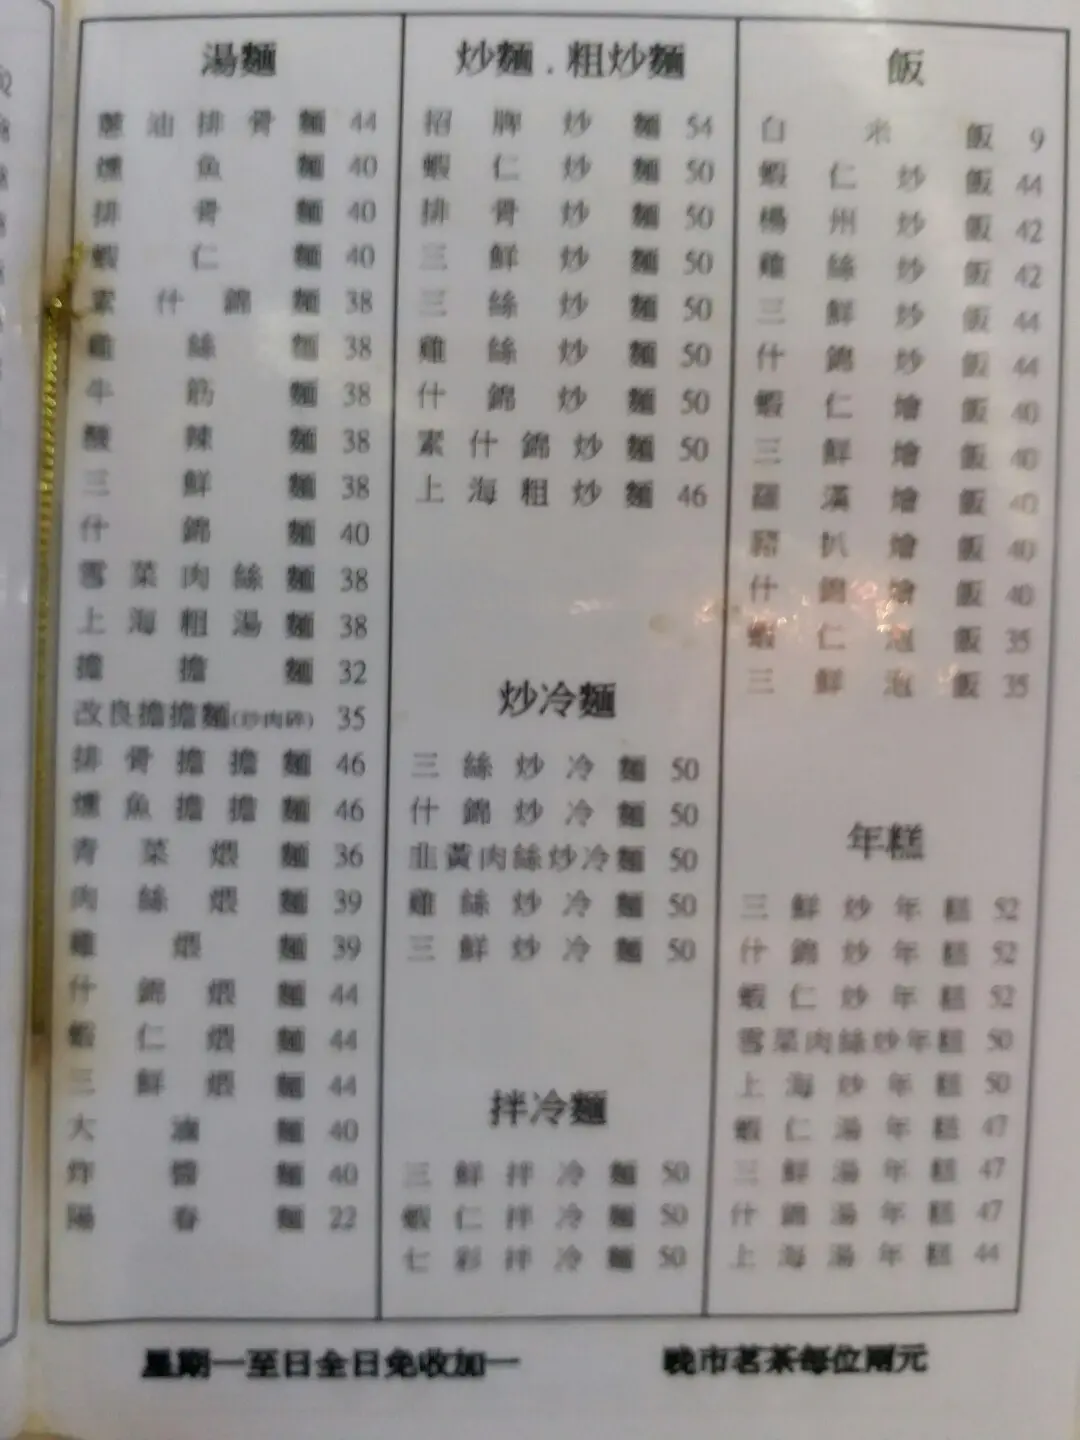 湯麵
蔥油排骨麵 44
燻魚麵 40
排骨麵 40
蝦仁麵 40
素什錦麵 38
雞絲麵 38
牛筋麵 38
酸辣麵 38
三鮮麵 38
什錦麵 40
雪菜肉絲麵 38
上海粗湯麵 38
擔擔麵 32
改良擔擔麵(炒肉碎) 35
排骨擔擔麵 46
燻魚擔擔麵 46
青菜煨麵 36
肉絲煨麵 39
雞煨麵 39
什錦煨麵 44
蝦仁煨麵 44
三鮮煨麵 44
大滷麵 40
炸醬麵 40
陽春麵 22
炒麵.粗炒麵
招牌炒麵 54
蝦仁炒麵 50
排骨炒麵 50
三鮮炒麵 50
三絲炒麵 50
雞絲炒麵 50
什錦炒麵 50
素什錦炒麵 50
上海粗炒麵 46
炒冷麵
三絲炒冷麵 50
什錦炒冷麵 50
韭黃肉絲炒冷麵 50
雞絲炒冷麵 50
三鮮炒冷麵 50
拌冷麵
三鮮拌冷麵 50
蝦仁拌冷麵 50
七彩拌冷麵 50
飯
白米飯 9
蝦仁炒飯 44
楊州炒飯 42
雞絲炒飯 42
三鮮炒飯 44
什錦炒飯 44
蝦仁燴飯 40
三鮮燴飯 40
羅漢燴飯 40
豬扒燴飯 40
什錦燴飯 40
蝦仁泡飯 35
三鮮泡飯 35
年糕
三鮮炒年糕 52
什錦炒年糕 52
蝦仁炒年糕 52
雪菜肉絲炒年糕 50
上海炒年糕 50
蝦仁湯年糕 47
三鮮湯年糕 47
什錦湯年糕 47
上海湯年糕 44
星期一至日全日免收加一
晚市茗茶每位兩元